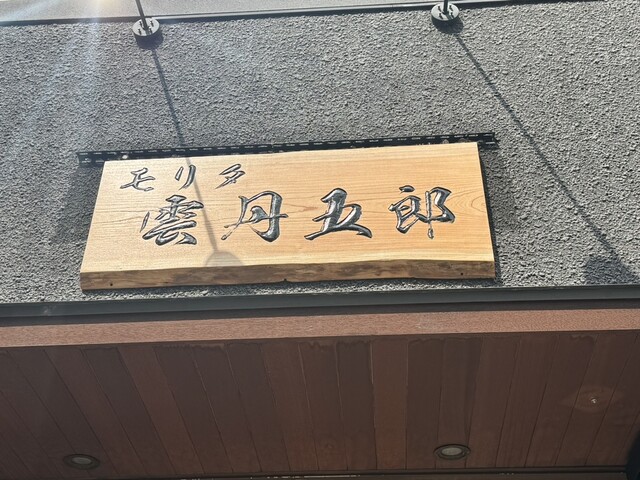 モリタ
雲丹五郎